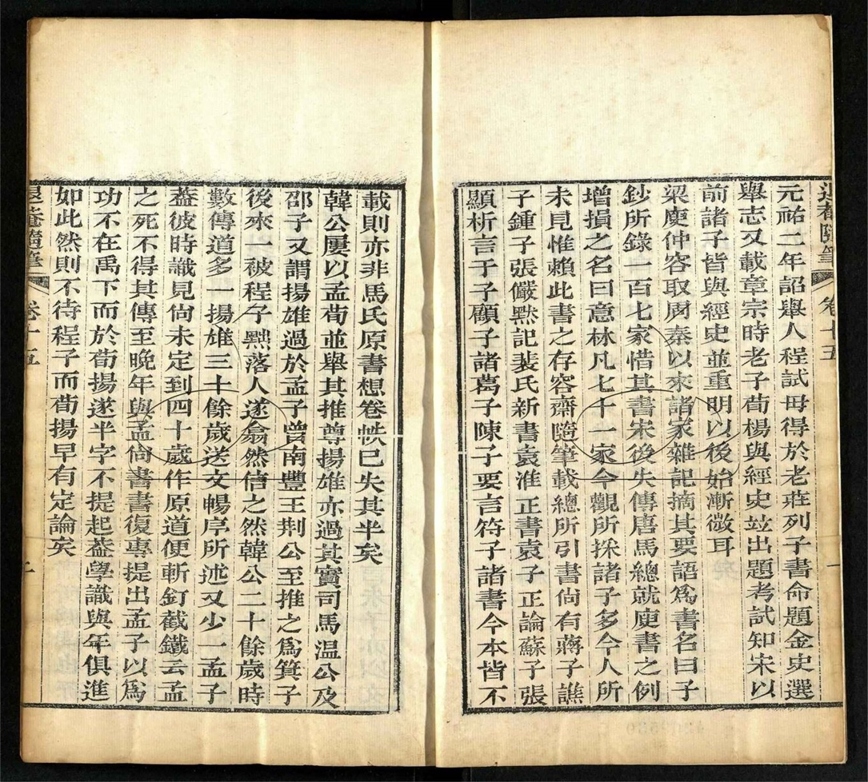 元祐二年詔舉人程試毋得於老莊列子書命題金史選
舉志又載章宗時老子荀楊與經史並出題考試知宋以
前諸子皆與經史並重明以後始漸微耳
梁庾仲容取周秦以來諸家雜記摘其要語爲書名曰子
鈔所錄一百七家惜其書宋後失傳唐馬總就庾書之例
增損之名曰意林凡七十一家今觀所採諸子多今人所
未見惟賴此書之存容齋隨筆載總所引書尚有蔣子譙
子鍾子張儼默記裴氏新書袁淮正書袁子正論蘇子張
顯析言于子顧子諸葛子陳子要言符子諸書今本皆不
退菴隨筆 卷十五 一
載則亦非馬氏原書想卷帙已失其半矣
韓公屢以孟荀並舉其推尊揚雄亦過其實司馬溫公及
邵子又謂揚雄過於孟子曾南豐王荆公至推之爲箕子
後來一被程子黙落人遂翕然信之然韓公二十餘歲時
數傳道多一揚雄三十餘歲送文暢序所述又少一孟子
葢彼時識見尚未定到四十歲作原道便斬釘截鐵云孟
之死不得其傳至晚年與孟尚書書復專提出孟子以爲
功不在禹下而於荀揚遂半字不提起葢學識與年俱進
如此然則不待程子而荀揚早有定論矣
退菴隨筆 卷十五 二